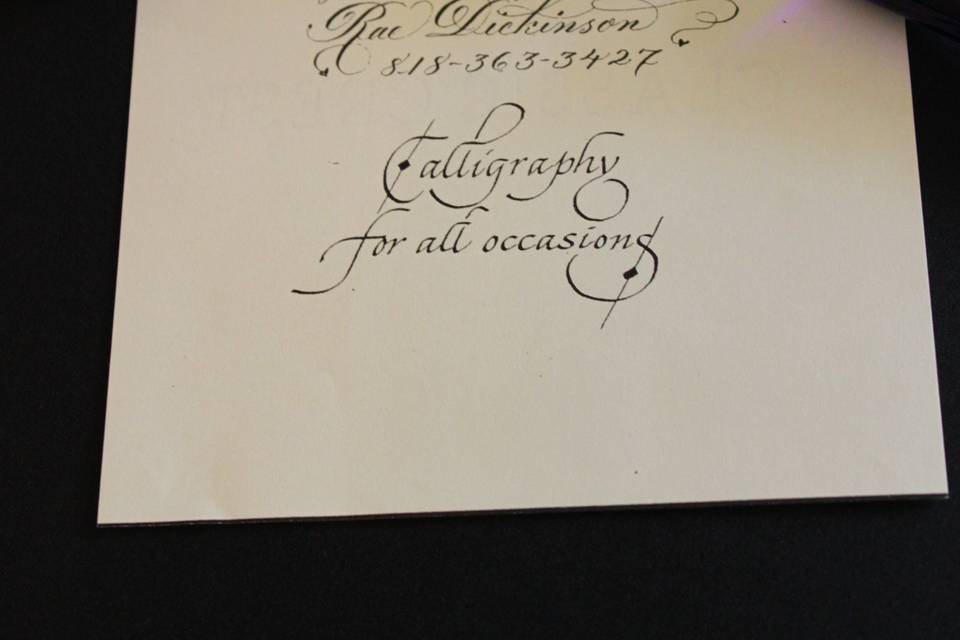 Rae Dickinson
818-363-3427
Calligraphy
for all occasions